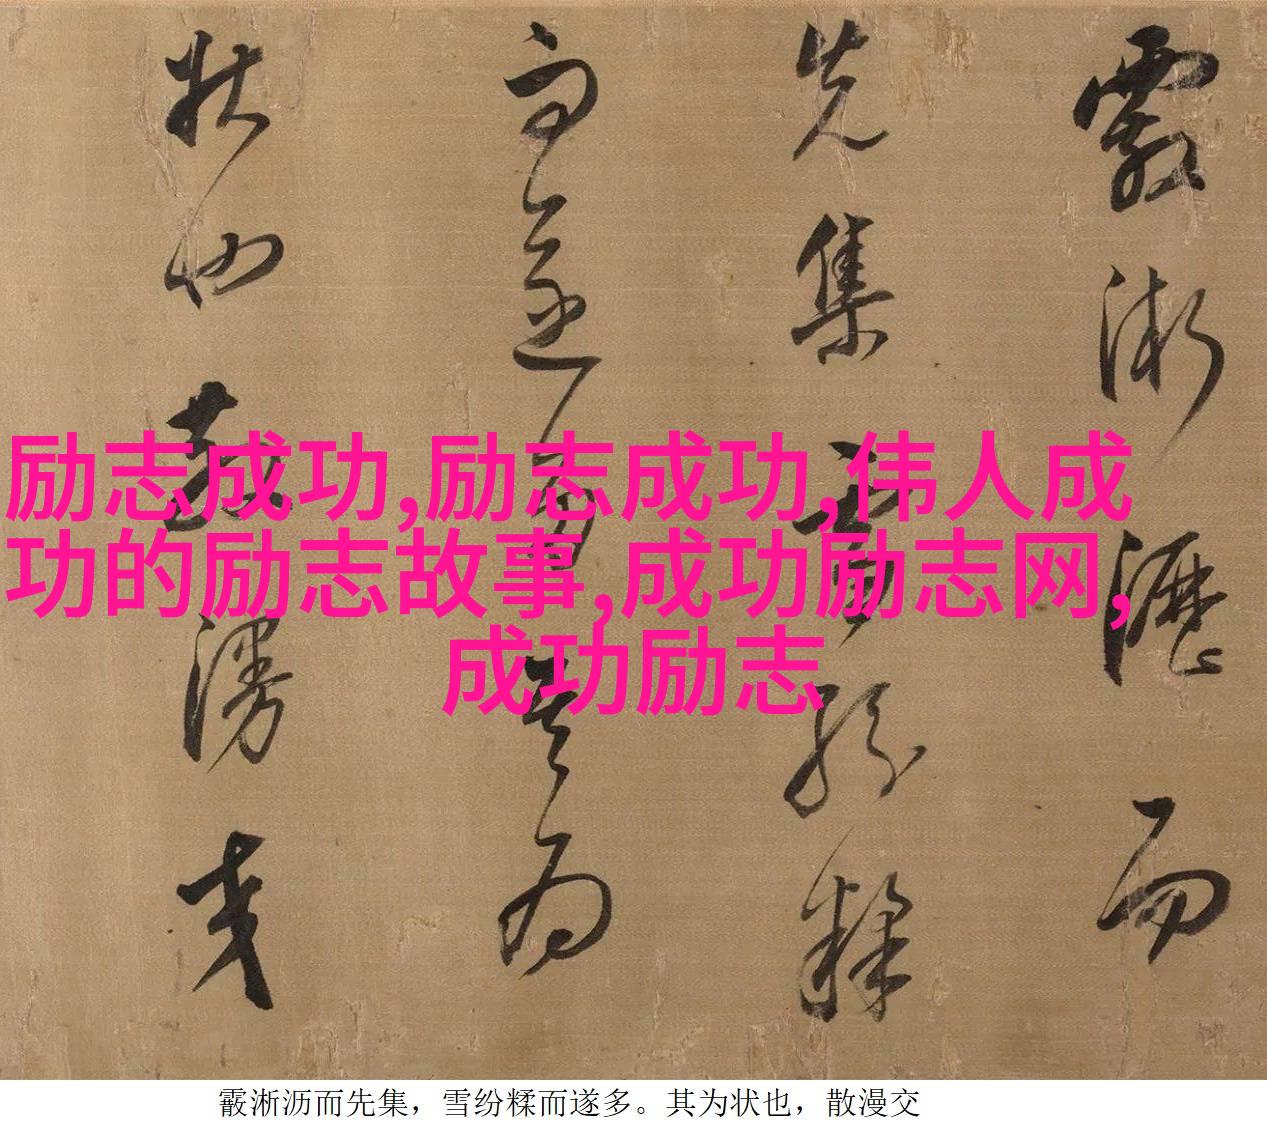 霰淅沥而
先集雪纷糅
而遂多其为
状也散漫交
励志成功,励志成功,伟人成
功的励志故事,成功励志网,
成功励志
霰淅沥而先集，雪纷糅而遂多。其为状也，散漫交